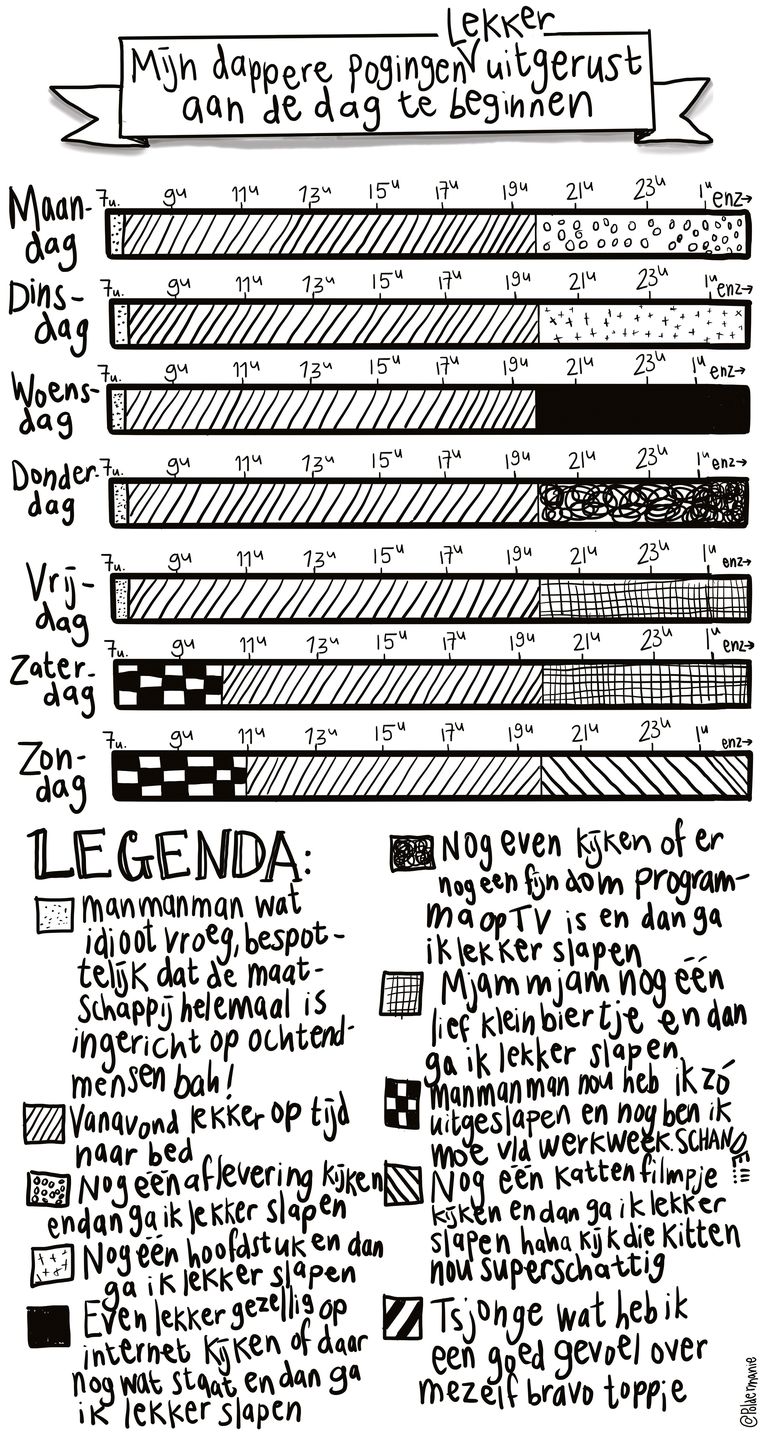 Lekker
Mijn dappere pogingen V uitgerust
aan de dag te beginnen
Maan-
dag
7u. 9u 11u 13u 15u 17u 19u 21u 23u 1u enz→
Dins-
dag
7u. 9u 11u 13u 15u 17u 19u 21u 23u 1u enz→
Woens-
dag
7u. 9u 11u 13u 15u 17u 19u 21u 23u 1u enz→
Donder-
dag
7u. 9u 11u 13u 15u 17u 19u 21u 23u 1u enz→
Vrij-
dag
7u. 9u 11u 13u 15u 17u 19u 21u 23u 1u enz→
Zater-
dag
7u. 9u 11u 13u 15u 17u 19u 21u 23u 1u enz→
Zon-
dag
7u. 9u 11u 13u 15u 17u 19u 21u 23u 1u enz→
LEGENDA:
manmanman wat
idioot vroeg, bespot-
telijk dat de maat-
schappij helemaal is
ingericht op ochtend-
mensen bah!
Vanavond lekker op tijd
naar bed
Nog één aflevering kijken
en dan ga ik lekker slapen
Nog één hoofdstuk en dan
ga ik lekker slapen
Even lekker gezellig op
internet kijken of daar
nog wat staat en dan ga
ik lekker slapen
Nog even kijken of er
nog een fijn dom program-
ma op TV is en dan ga
ik lekker slapen
Mjam mjam nog één
lief klein biertje en dan
ga ik lekker slapen.
manmanman nou heb ik zó
uitgeslapen en nog ben ik
moe v/d werkweek. SCHANDE!!!
Nog één kattenfilmpje
kijken en dan ga ik lekker
slapen haha kijk die kitten
nou superschattig
Tsjonge wat heb ik
een goed gevoel over
mezelf bravo toppie
@Poldermanie